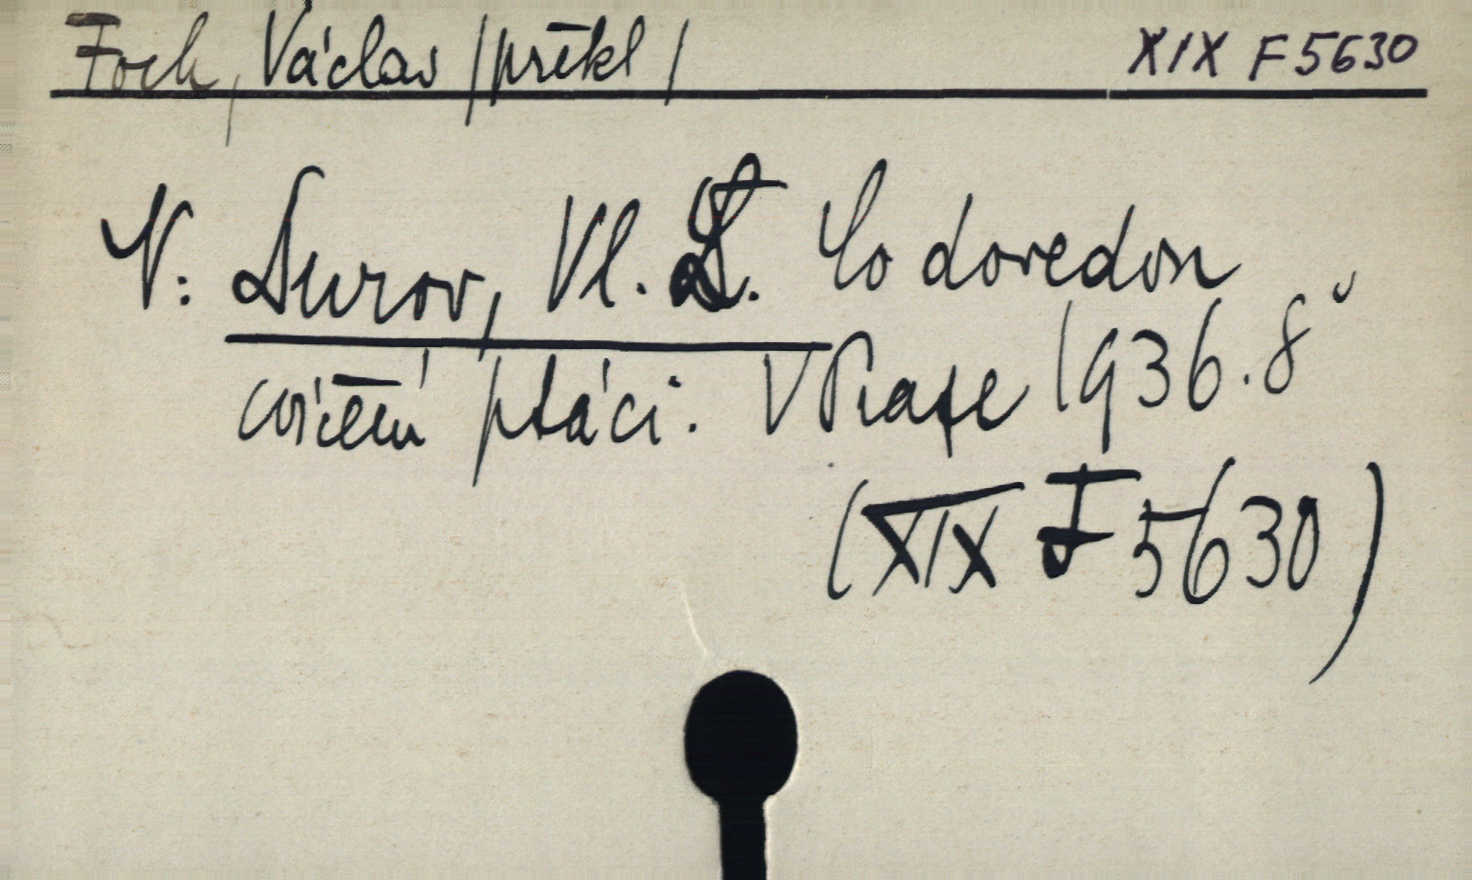 Foch, Václav /překl/ XIX F 5630
V: Durov, Vl. L. Co dovedou
cvičení ptáci. V Praze 1936. 8°
(XIX F 5630)